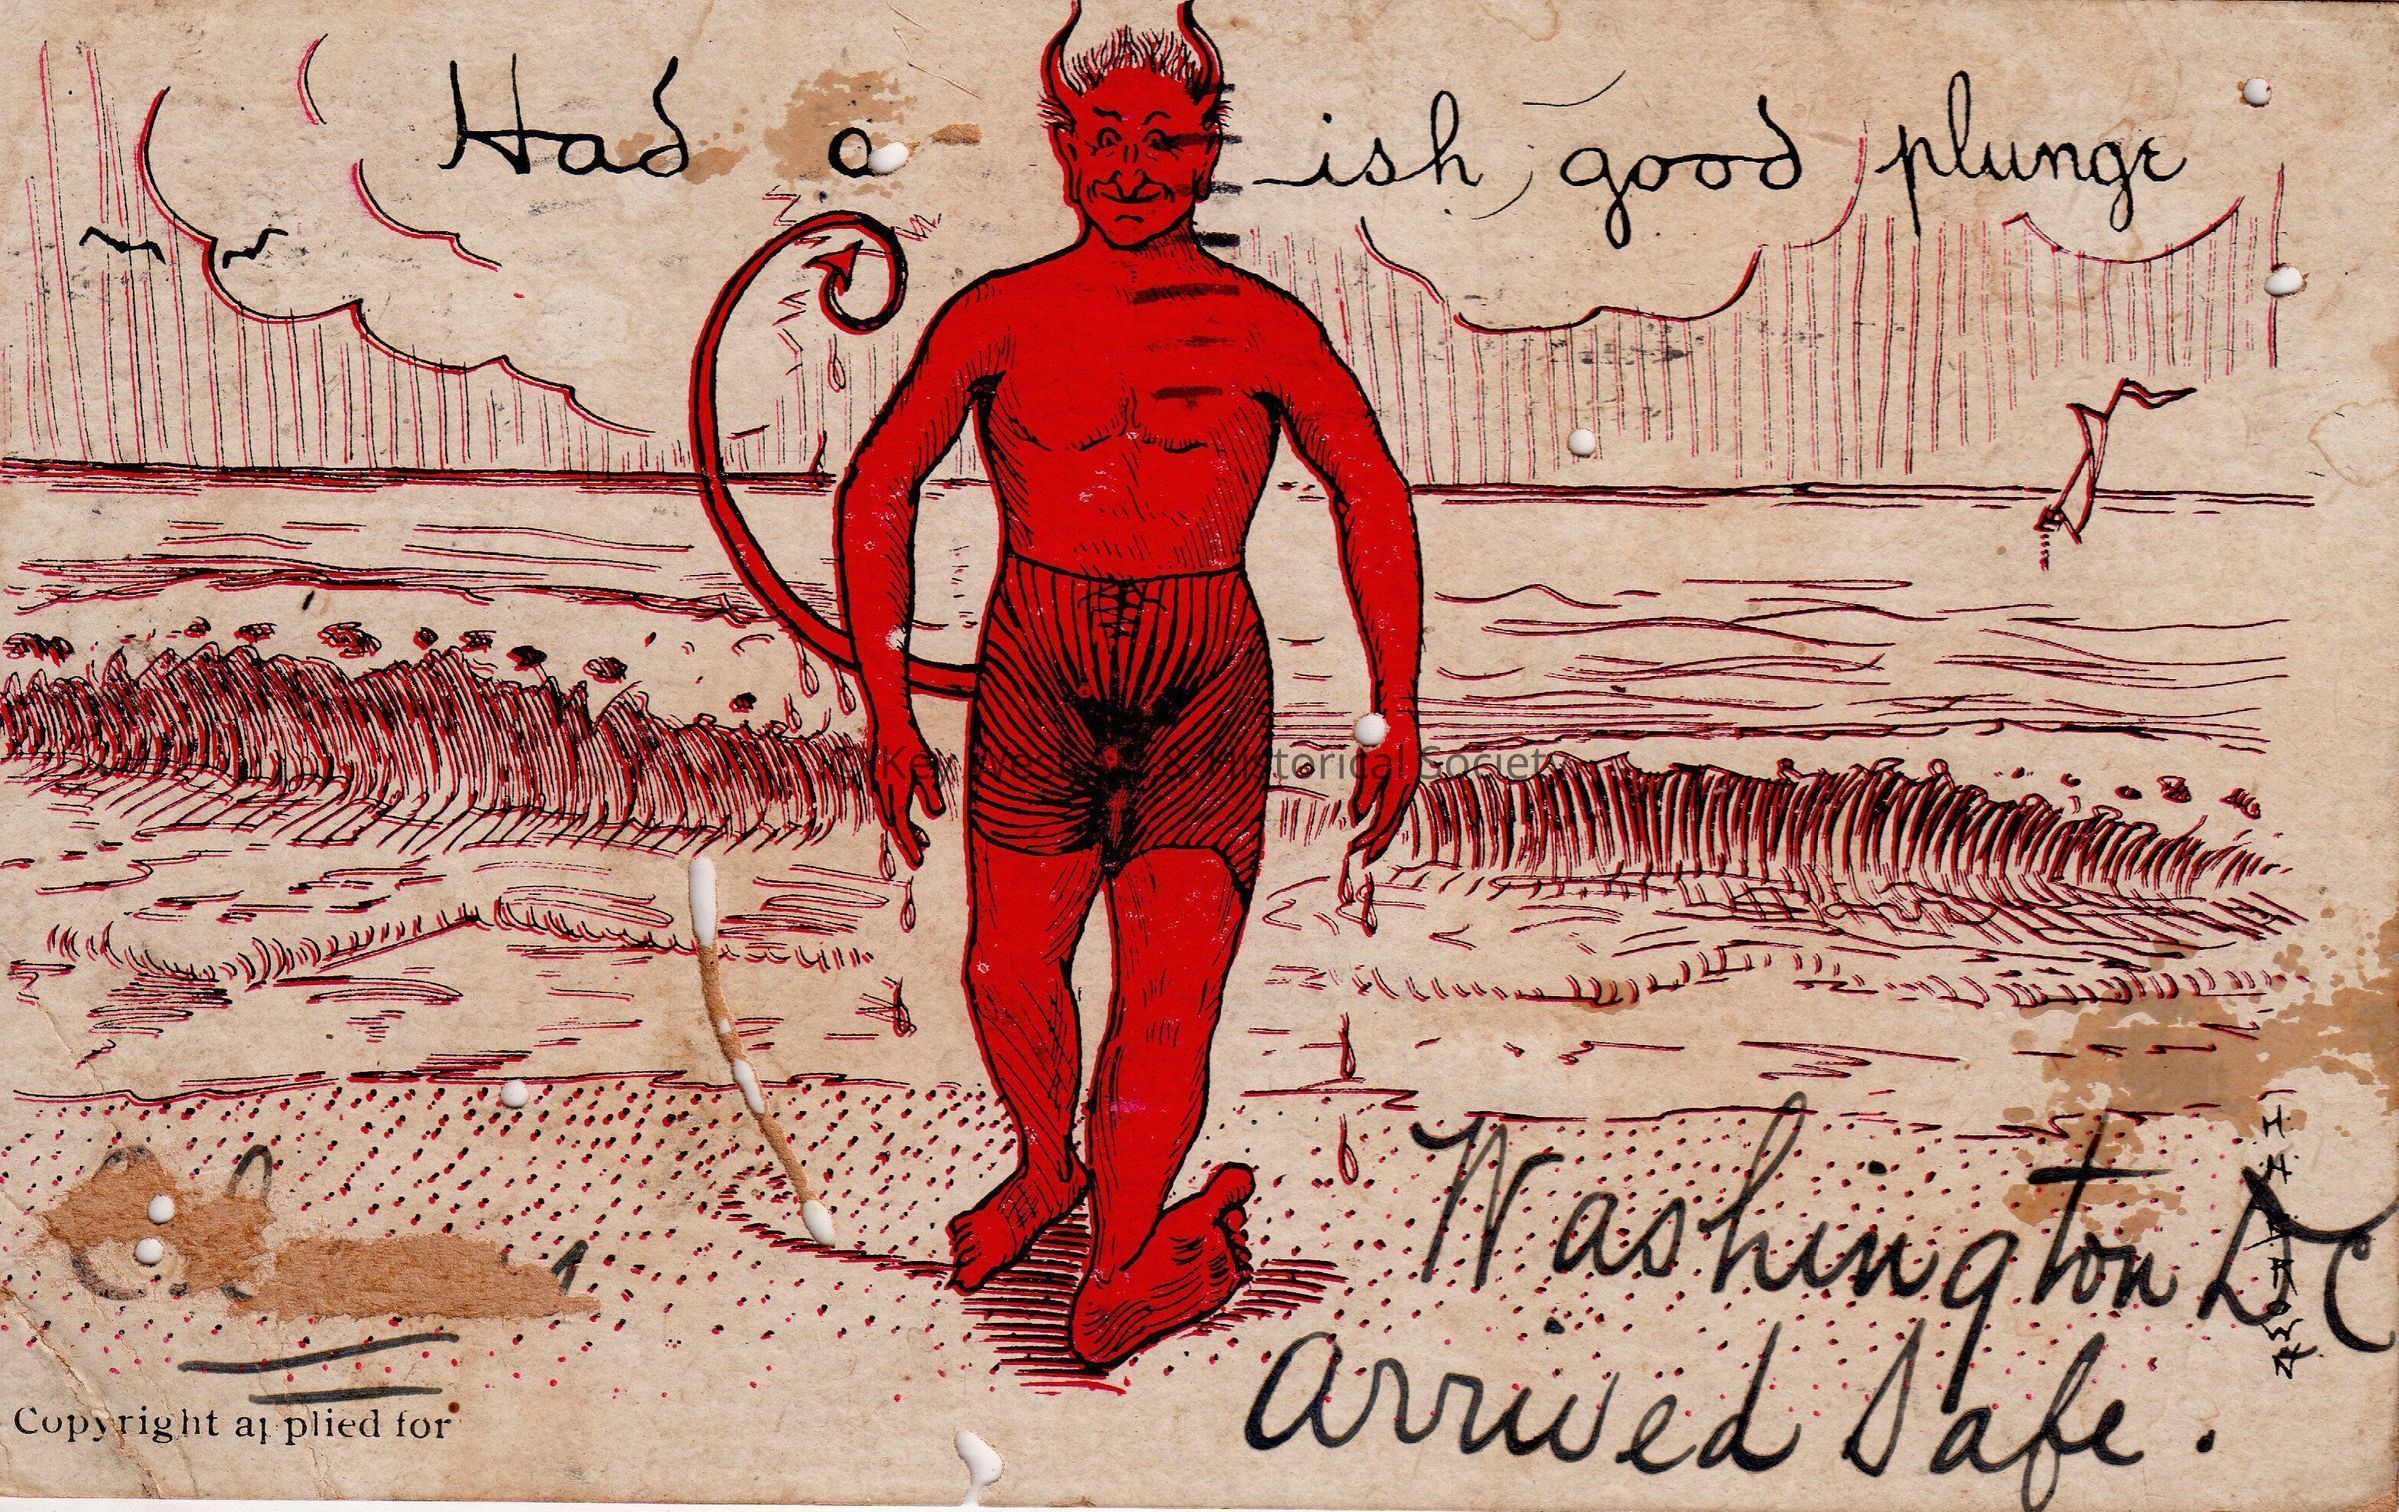 Had a ish good plunge
© Key West Art & Historical Society
Washington DC
Arrived Safe.
Copyright applied for